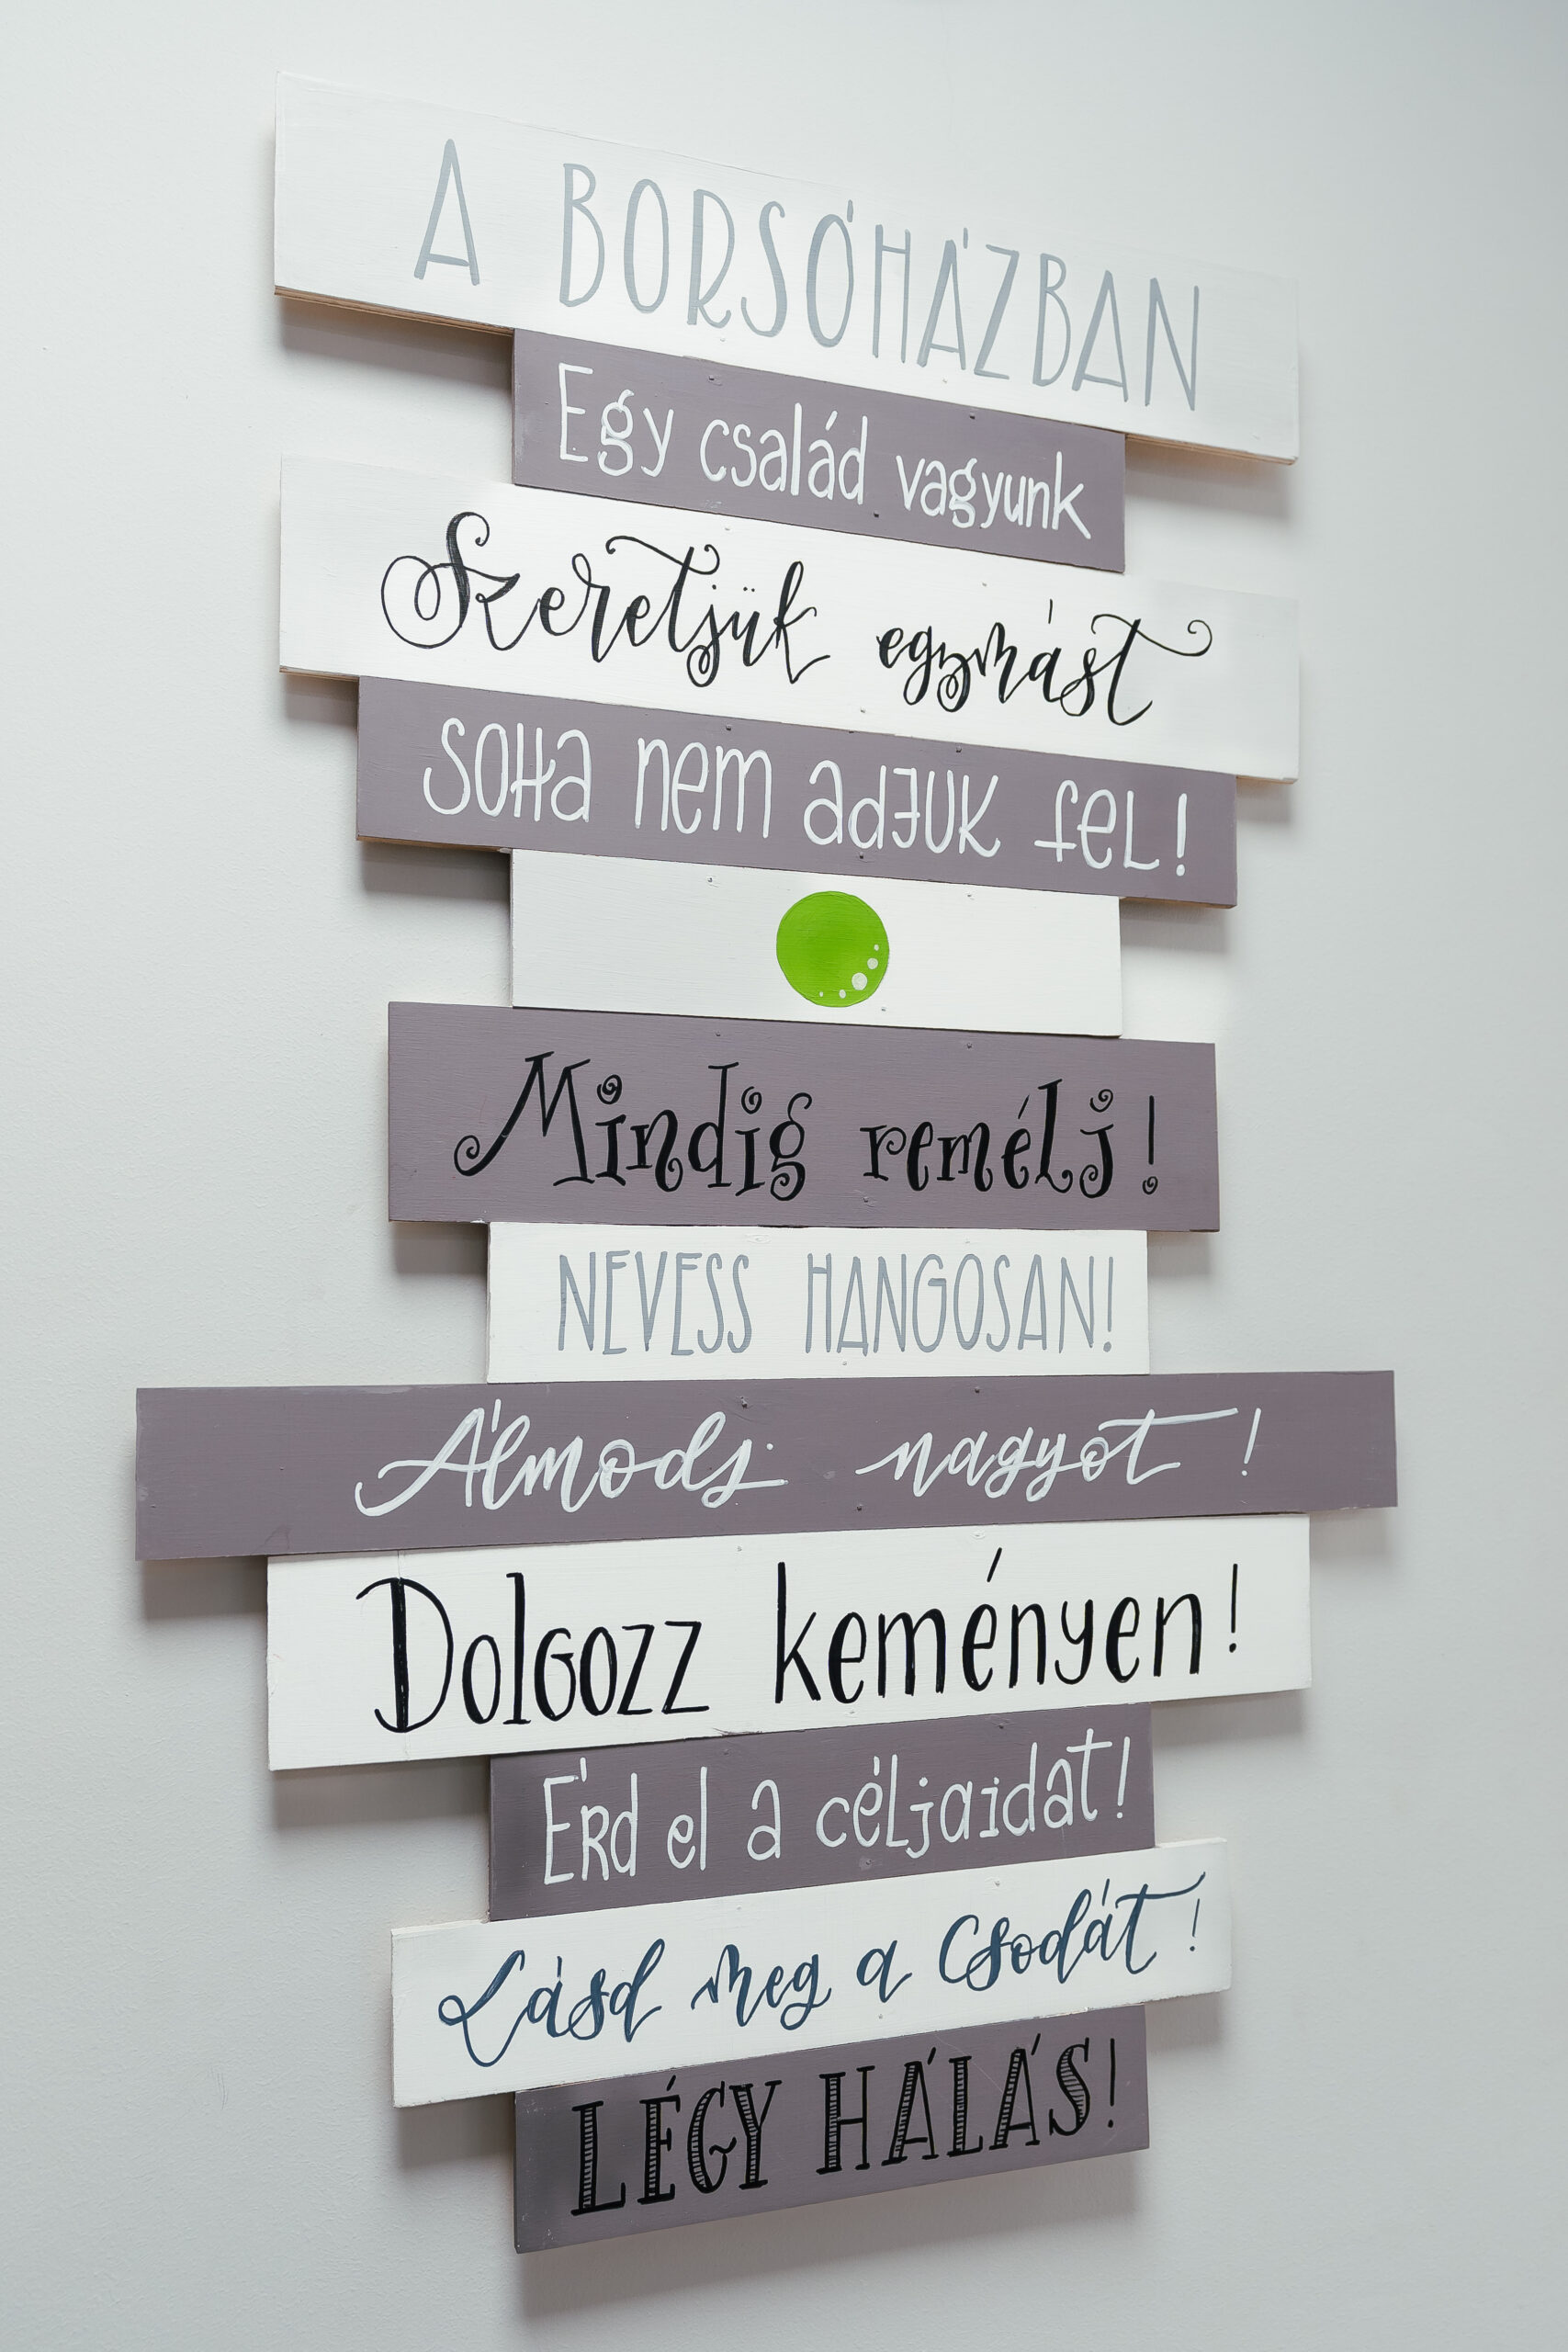 A BORSÓHÁZBAN
Egy család vagyunk
Szeretjük egymást
SOHa nem adJUK feL!
Mindig remélj!
NEVESS HANGOSAN!
Álmodj nagyot!
DolGozz keményen!
Érd el a céLjaidat!
Lásd meg a Csodát!
LÉGY HÁLÁS!